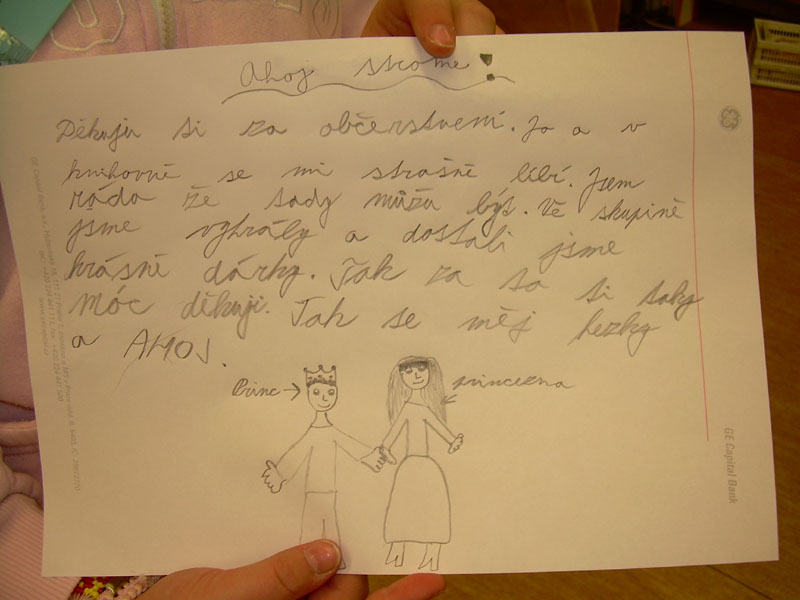 Ahoj strome!
Děkuju ti za občerstvení. Jo a v
knihovně se mi strašně líbí. Jsem
ráda že tady můžu být. Ve skupině
jsme vyhrály a dostali jsme
krásné dárky. Tak za to ti taky
móc děkuji. Tak se měj hezky
a AHOJ.
Princ
princezna
GE Capital Bank